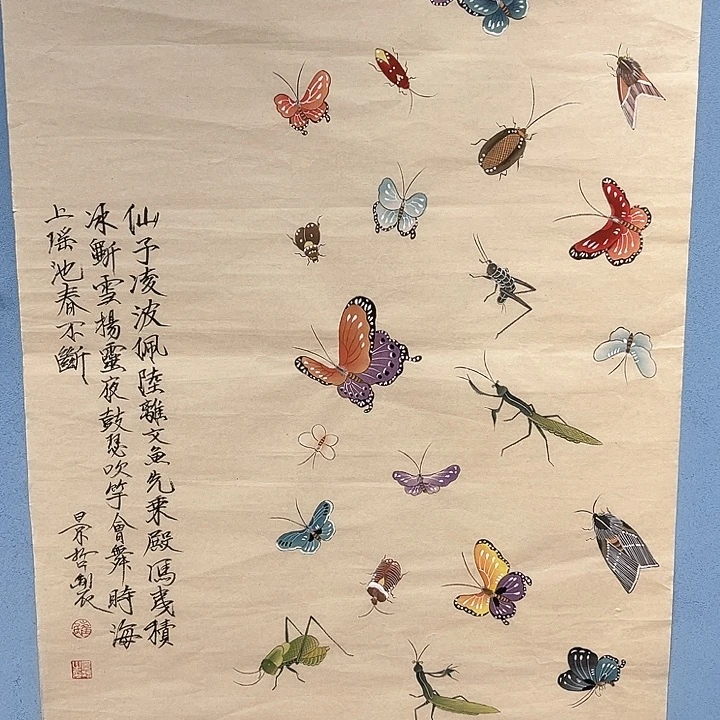 仙子凌波佩陸離文魚先乘殿馮夷積
冰斲雪揚靈夜鼓瑟吹竽會舞時海
上瑤池春不斷
景哲製